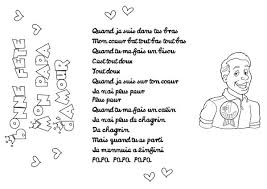 BONNE FÊTE
MON PAPA
D'AMOUR
Quand je suis dans tes bras
Mon coeur bat tout bas tout bas
Quand tu me fais un bisou
C'est tout doux
Tout doux
Quand je suis sur ton coeur
Je n'ai plus peur
Plus peur
Quand tu me fais un calin
Je n'ai plus de chagrin
De chagrin
Mais quand tu es parti
Je m'ennuie a l'infini
PAPA PAPA PAPA